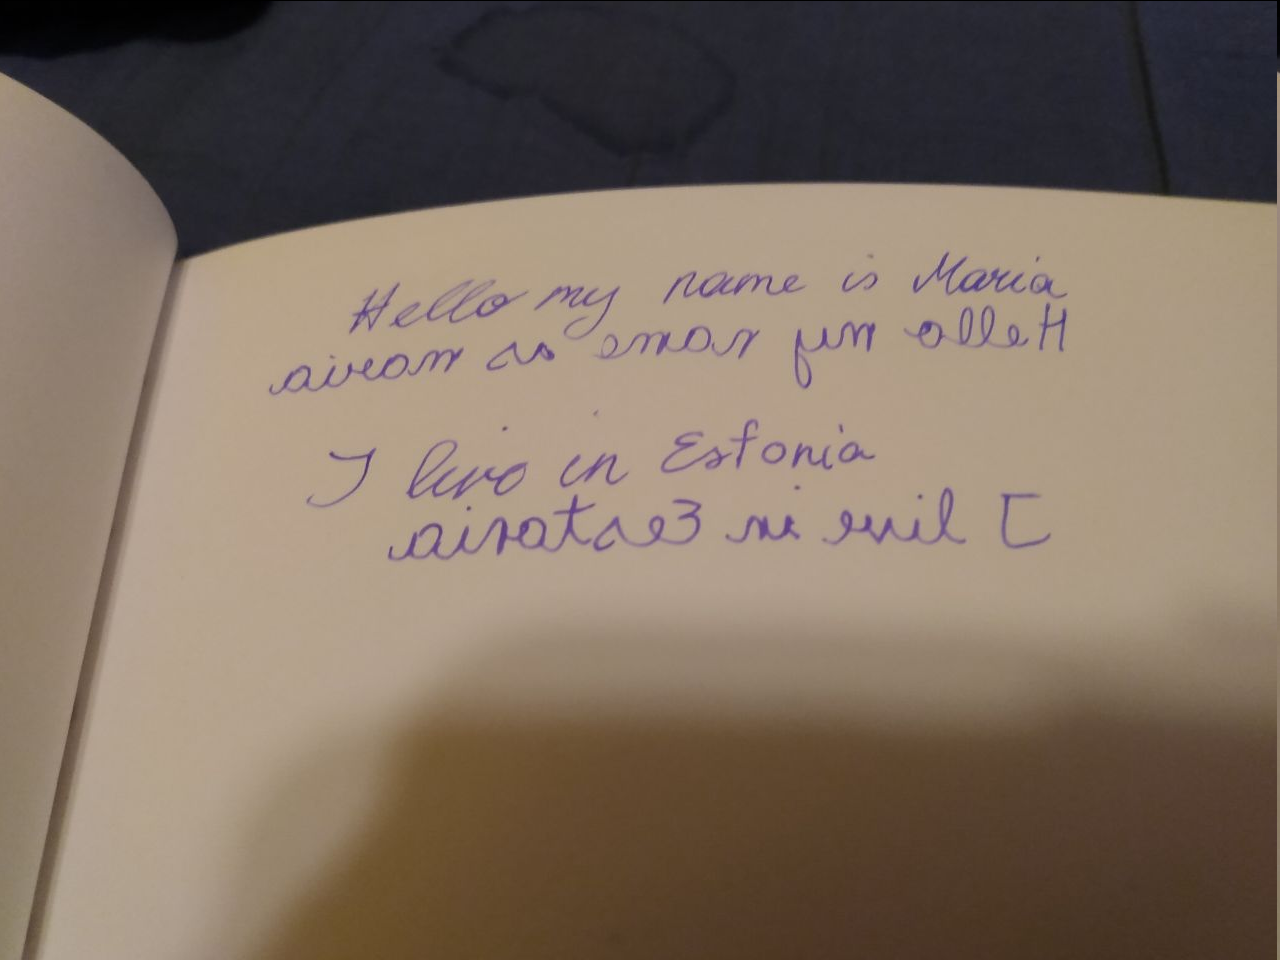 Hello my name is Maria
airam si eman ym olleH
I live in Estonia
ainotsE ni evil I